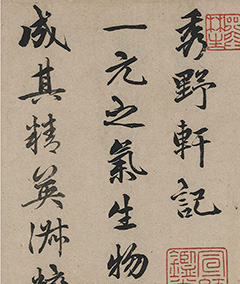 秀野軒記
一元之氣生物
成其精英淋